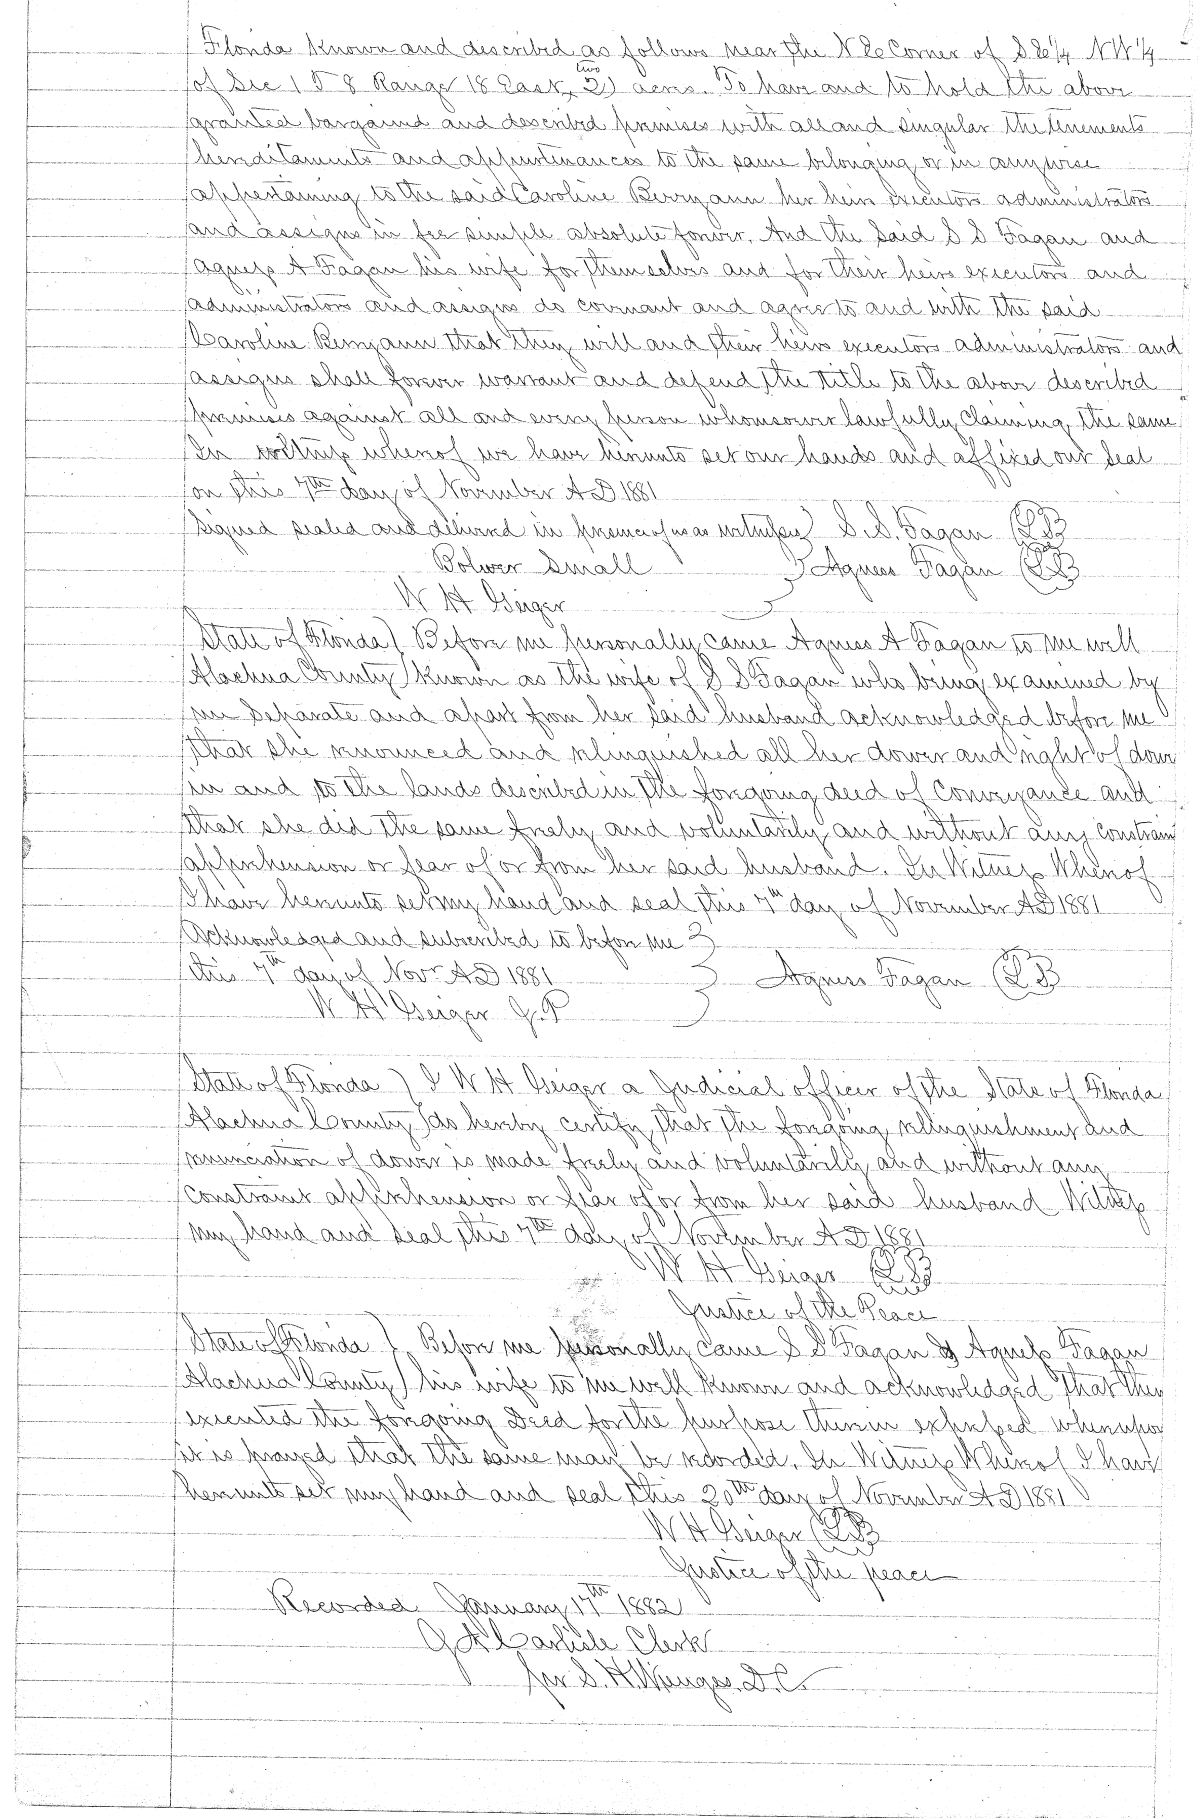 Florida known and described as follows near the N E Corner of S E 1/4 NW 1/4
of Sec 1 T 8 Range 18 East, two (2) acres. To have and to hold the above
granted bargained and described premises with all and singular the tenements
hereditaments and appurtenances to the same belonging or in anywise
appertaining to the said Caroline Berryann her heirs executors administrators
and assigns in fee simple absolute forever. And the said S S Fagan and
Agness A Fagan his wife for themselves and for their heirs executors and
administrators and assigns do covenant and agree to and with the said
Caroline Berryann that they will and their heirs executors administrators and
assigns shall forever warrant and defend the title to the above described
premises against all and every person whomsoever lawfully claiming the same
In witness whereof we have hereunto set our hands and affixed our seal
on this 7th day of November A D 1881
Signed sealed and delivered in presence of us as witnesses } S. S. Fagan (LS)
Bolwer Small } Agness Fagan (LS)
W H Geiger
State of Florida } Before me personally came Agness A Fagan to me well
Alachua County } known as the wife of S S Fagan who being examined by
me separate and apart from her said husband acknowledged before me
that she renounced and relinquished all her dower and right of dower
in and to the lands described in the foregoing deed of Conveyance and
that she did the same freely and voluntarily and without any constraint
apprehension or fear of or from her said husband. In Witness Whereof
I have hereunto set my hand and seal this 7th day of November A D 1881
Acknowledged and subscribed to before me }
this 7th day of Novr A D 1881 } Agness Fagan (LS)
W H Geiger J. P }
State of Florida } I W H Geiger a Judicial officer of the State of Florida
Alachua County } do hereby certify that the foregoing relinquishment and
renunciation of dower is made freely and voluntarily and without any
constraint apprehension or fear of or from her said husband Witness
my hand and seal this 7th day of November A D 1881
W H Geiger (LS)
Justice of the Peace
State of Florida } Before me personally came S S Fagan & Agness Fagan
Alachua County } his wife to me well known and acknowledged that they
executed the foregoing Deed for the purpose therein expressed whereupon
it is prayed that the same may be recorded. In Witness Whereof I have
hereunto set my hand and seal this 20th day of November A D 1881
W H Geiger (LS)
Justice of the peace
Recorded January 17th 1882
J A Carlisle Clerk
per S. H. Wienges. D. C.